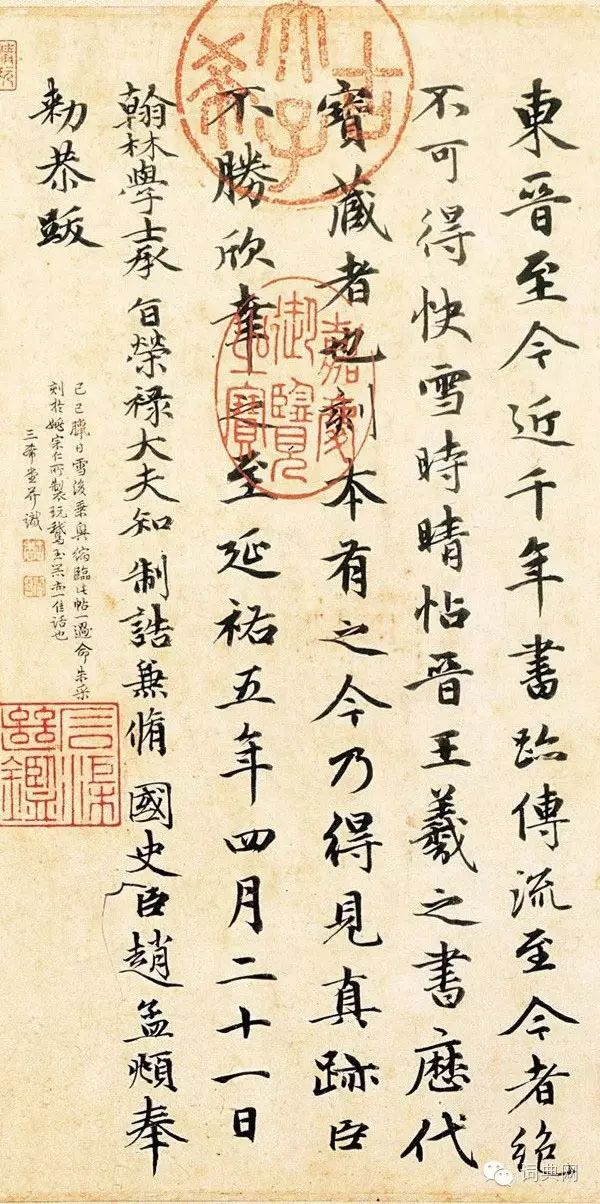 東晉至今近千年書跡傳流至今者絕
不可得快雪時晴帖晉王羲之書歷代
寶藏者也刻本有之今乃得見真跡臣
不勝欣幸之至延祐五年四月二十一日
翰林學士承旨榮祿大夫知制誥兼脩國史臣趙孟頫奉
勑恭跋
己巳臘日雪後乘興縮臨此帖一過命朱采
刻於姚宗仁所製玩鵞玉器亦一佳話也
三希堂并識
古希天子
嘉慶御覽之寶
石渠繼鑑
词典网